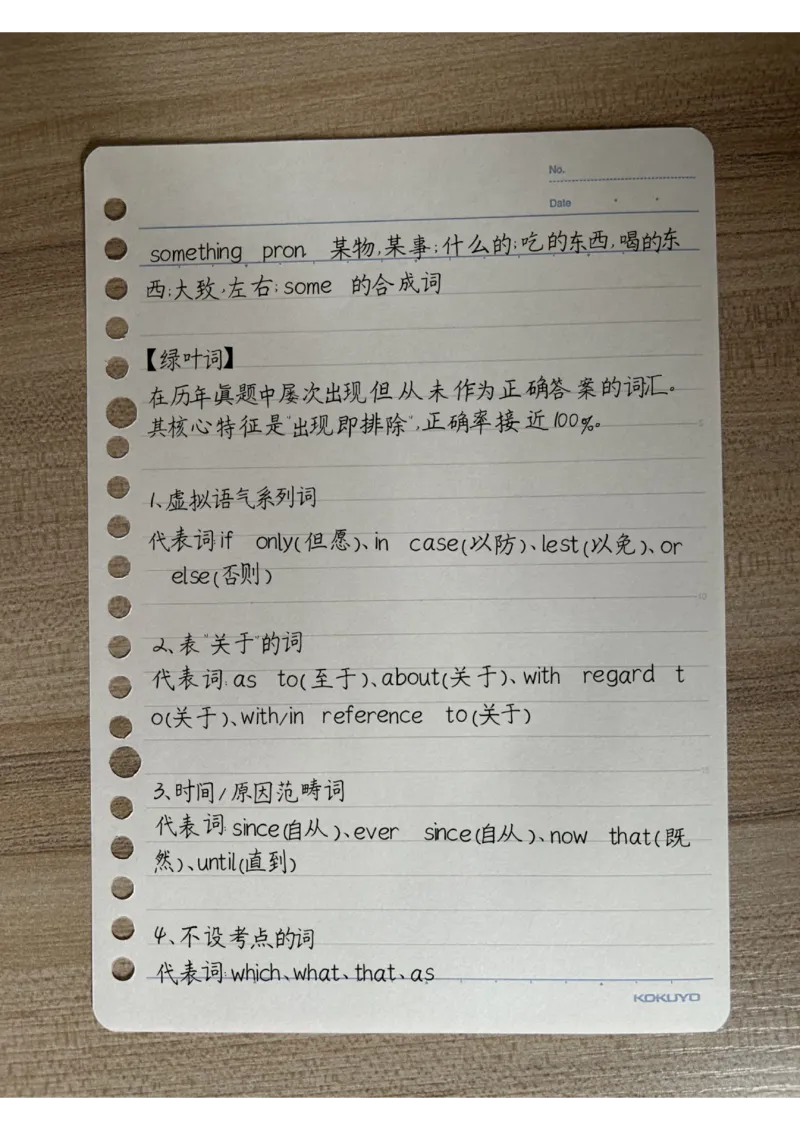 No.
Date
something pron. 某物,某事;什么的;吃的东西,喝的东
西;大致,左右;some 的合成词
【绿叶词】
在历年真题中屡次出现但从未作为正确答案的词汇。
其核心特征是“出现即排除”,正确率接近100%。
5
1、虚拟语气系列词
代表词:if only(但愿)、in case(以防)、lest(以免)、or
else(否则)
10
2、表“关于”的词
代表词:as to(至于)、about(关于)、with regard t
o(关于)、with/in reference to(关于)
15
3、时间/原因范畴词
代表词:since(自从)、ever since(自从)、now that(既
然)、until(直到)
4、不设考点的词
代表词:which、what、that、as
KOKUYO